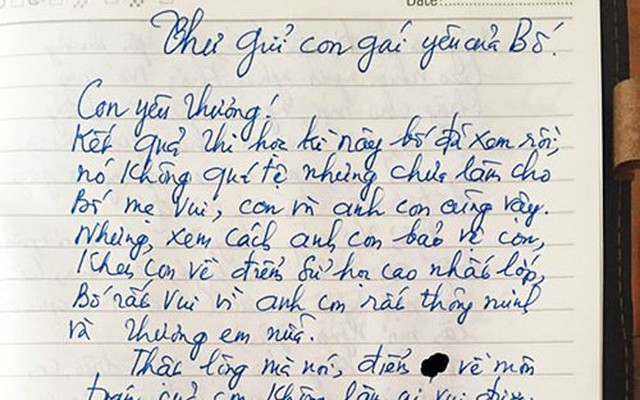 Date:
Thư gửi con gái yêu của Bố.
Con yêu thương!
Kết quả thi học kì này bố đã xem rồi,
nó không quá tệ nhưng chưa làm cho
Bố mẹ vui, con và anh con cũng vậy.
Nhưng, xem cách anh con bảo vệ con,
Khen con về điểm sử học cao nhất lớp,
Bố rất vui vì anh con rất thông minh
và thương em nữa.
Thật lòng mà nói, điểm về môn
toán của con không làm ai vui được.